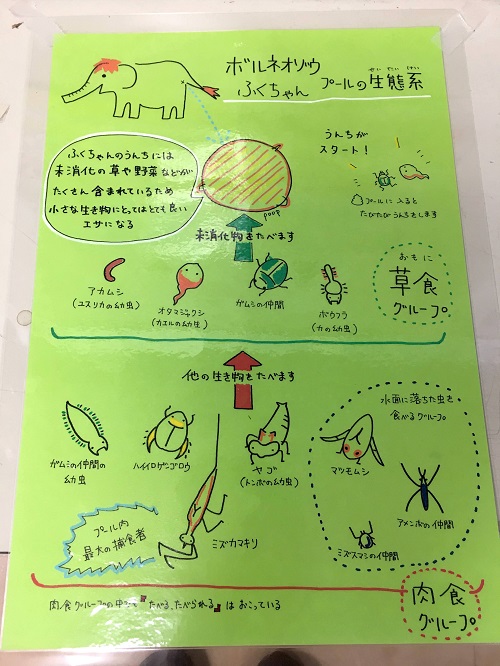 ボルネオゾウ
ふくちゃん プールの生態系
せいたいけい
ふくちゃんのうんちには
未消化の草や野菜などが
たくさん含まれているため
小さな生き物にとってはとても良い
エサになる
poop
うんちが
スタート!
プールに入ると
たびたびうんちをします
未消化物をたべます
アカムシ
(ユスリカの幼虫)
オタマジャクシ
(カエルの幼生)
ガムシの仲間
ボウフラ
(カの幼虫)
おもに
草食
グループ
他の生き物をたべます
ガムシの仲間の
幼虫
ハイイロゲンゴロウ
ヤゴ
(トンボの幼虫)
水面に落ちた虫を
食べるグループ
マツモムシ
アメンボの仲間
ミズスマシの仲間
プール内
最大の捕食者
ミズカマキリ
肉食グループの中でも『たべる、たべられる』はおこっている
肉食
グループ